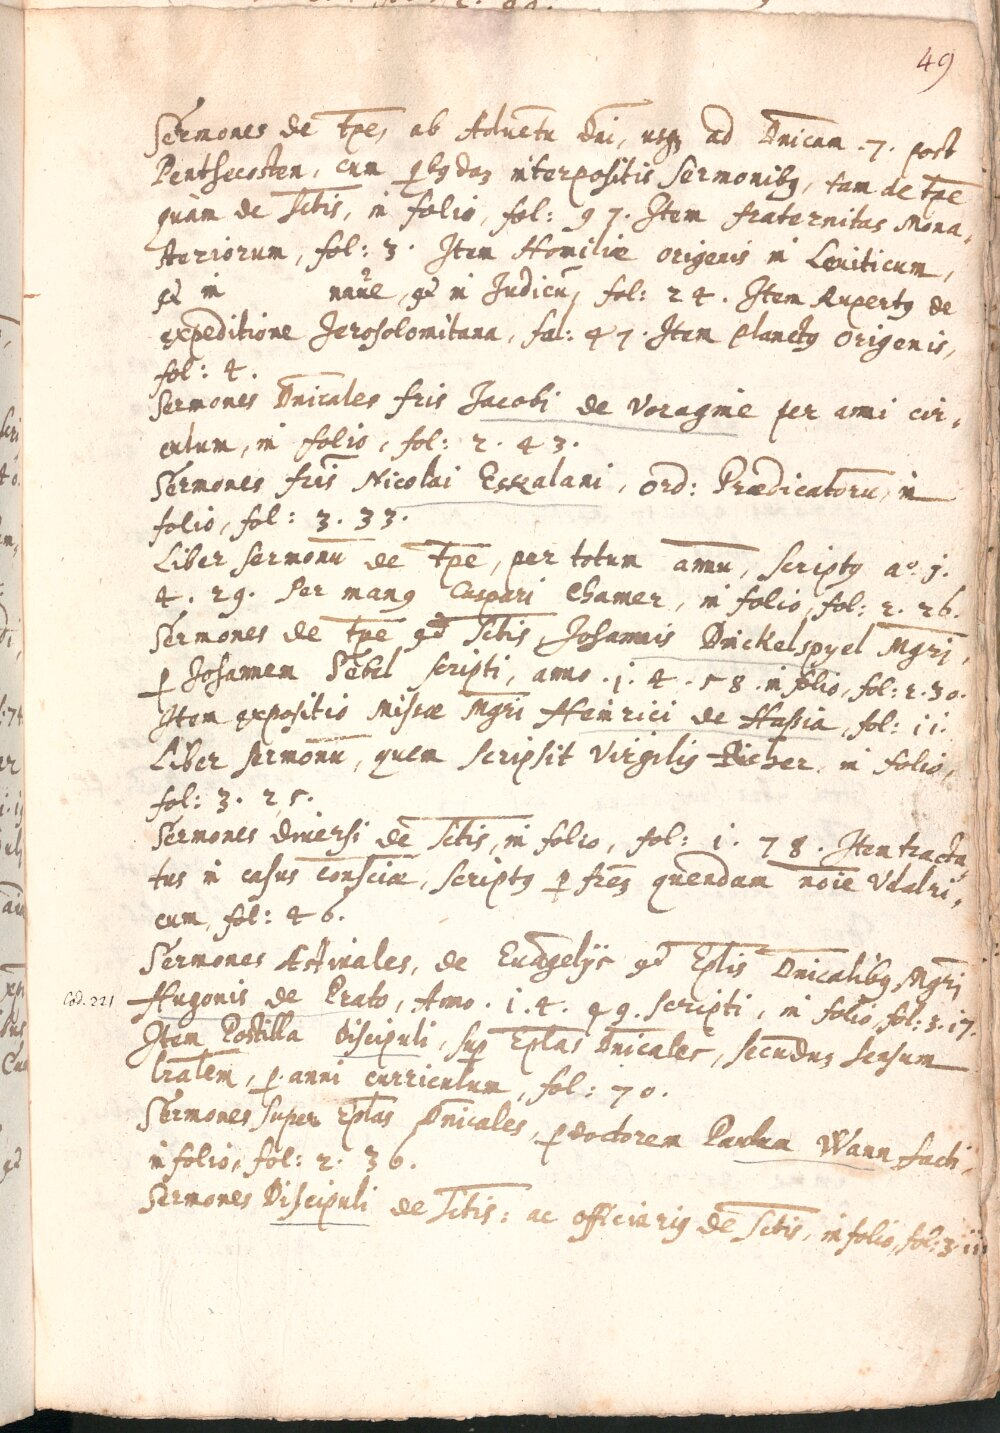 49
Sermones de tpe, ab Aduetu dni, usq ad Dnicam .7. post
Penthecosten, cum qbqdaz interpositis Sermonibq, tam de tpe
quàm de Sctis, in folio, fol: 97. Item fraternitas Mona,
steriorum, fol: 3. Item Homiliæ origenis in Leuiticum,
in naue, in Iudicu, fol: 24. Item Rupertq de
expeditione Jerosolomitana, fol: 47. Item planctq Origenis,
fol: 4.
Sermones Dnicales fris Jacobi de Voragine per anni cir,
culum, in folio, fol: 2. 43.
Sermones fris Nicolai Esskalani, ord: Prædicatoru, in
folio, fol: 3. 33.
Liber sermonu de tpe, per totum annu, scriptq aº. 1.
4. 29. Per manq Caspari Chamer, in folio, fol: 2. 26.
Sermones de tpe qd Sctis Johannis Dnickelspyel Mgri,
p Johannem Pebel scripti, anno .1. 4. 58. in folio, fol: 2. 30.
Item expositio Missæ Mgri Heinrici de Hassia, fol: 11.
Liber sermonu, quem scripsit Virgiliq Richer in folio,
fol: 3. 25.
Sermones diuersi de Sctis, in folio, fol: 1. 78. Item tracta,
tus in casus consciæ, scriptq p frez quendam noie Vdalri,
cum, fol: 46.
Sermones Æstiuales, de Euāgelijs qd Eplis Dnicalibq Mgri
Cod. 221
Hugonis de Prato, Anno. 1. 4. 99. scripti, in folio, fol: 3. 17.
Item Postilla discipuli, sup Eplas Dnicales, secunduz sensum
lralem, p. anni curriculum, fol: 70.
Sermones super Eplas Dnicales, p doctorem Paulum Wann facti,
in folio, fol: 2. 36.
Sermones Discipuli de Sctis: ac officiariq de Sctis, in folio, fol: 3. 11